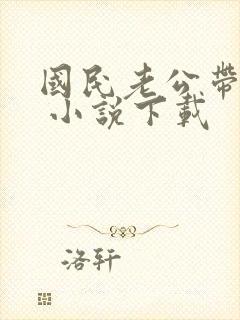 國民老公帶
小說下載
洛轩